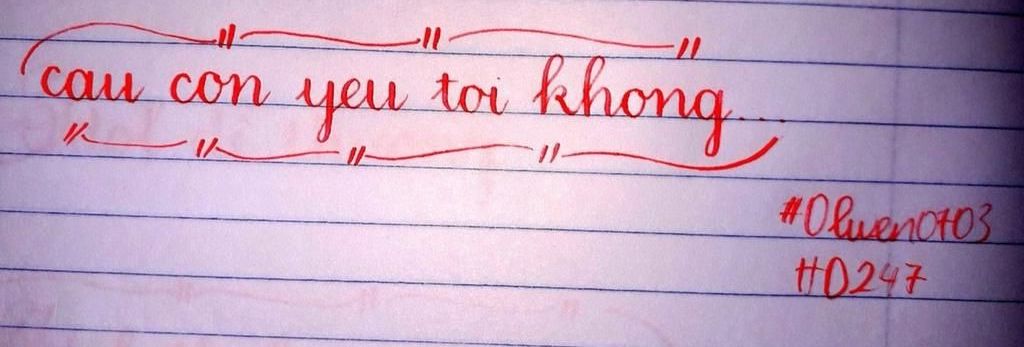 cau con yeu toi khong...
#Oluen0t03
HD247